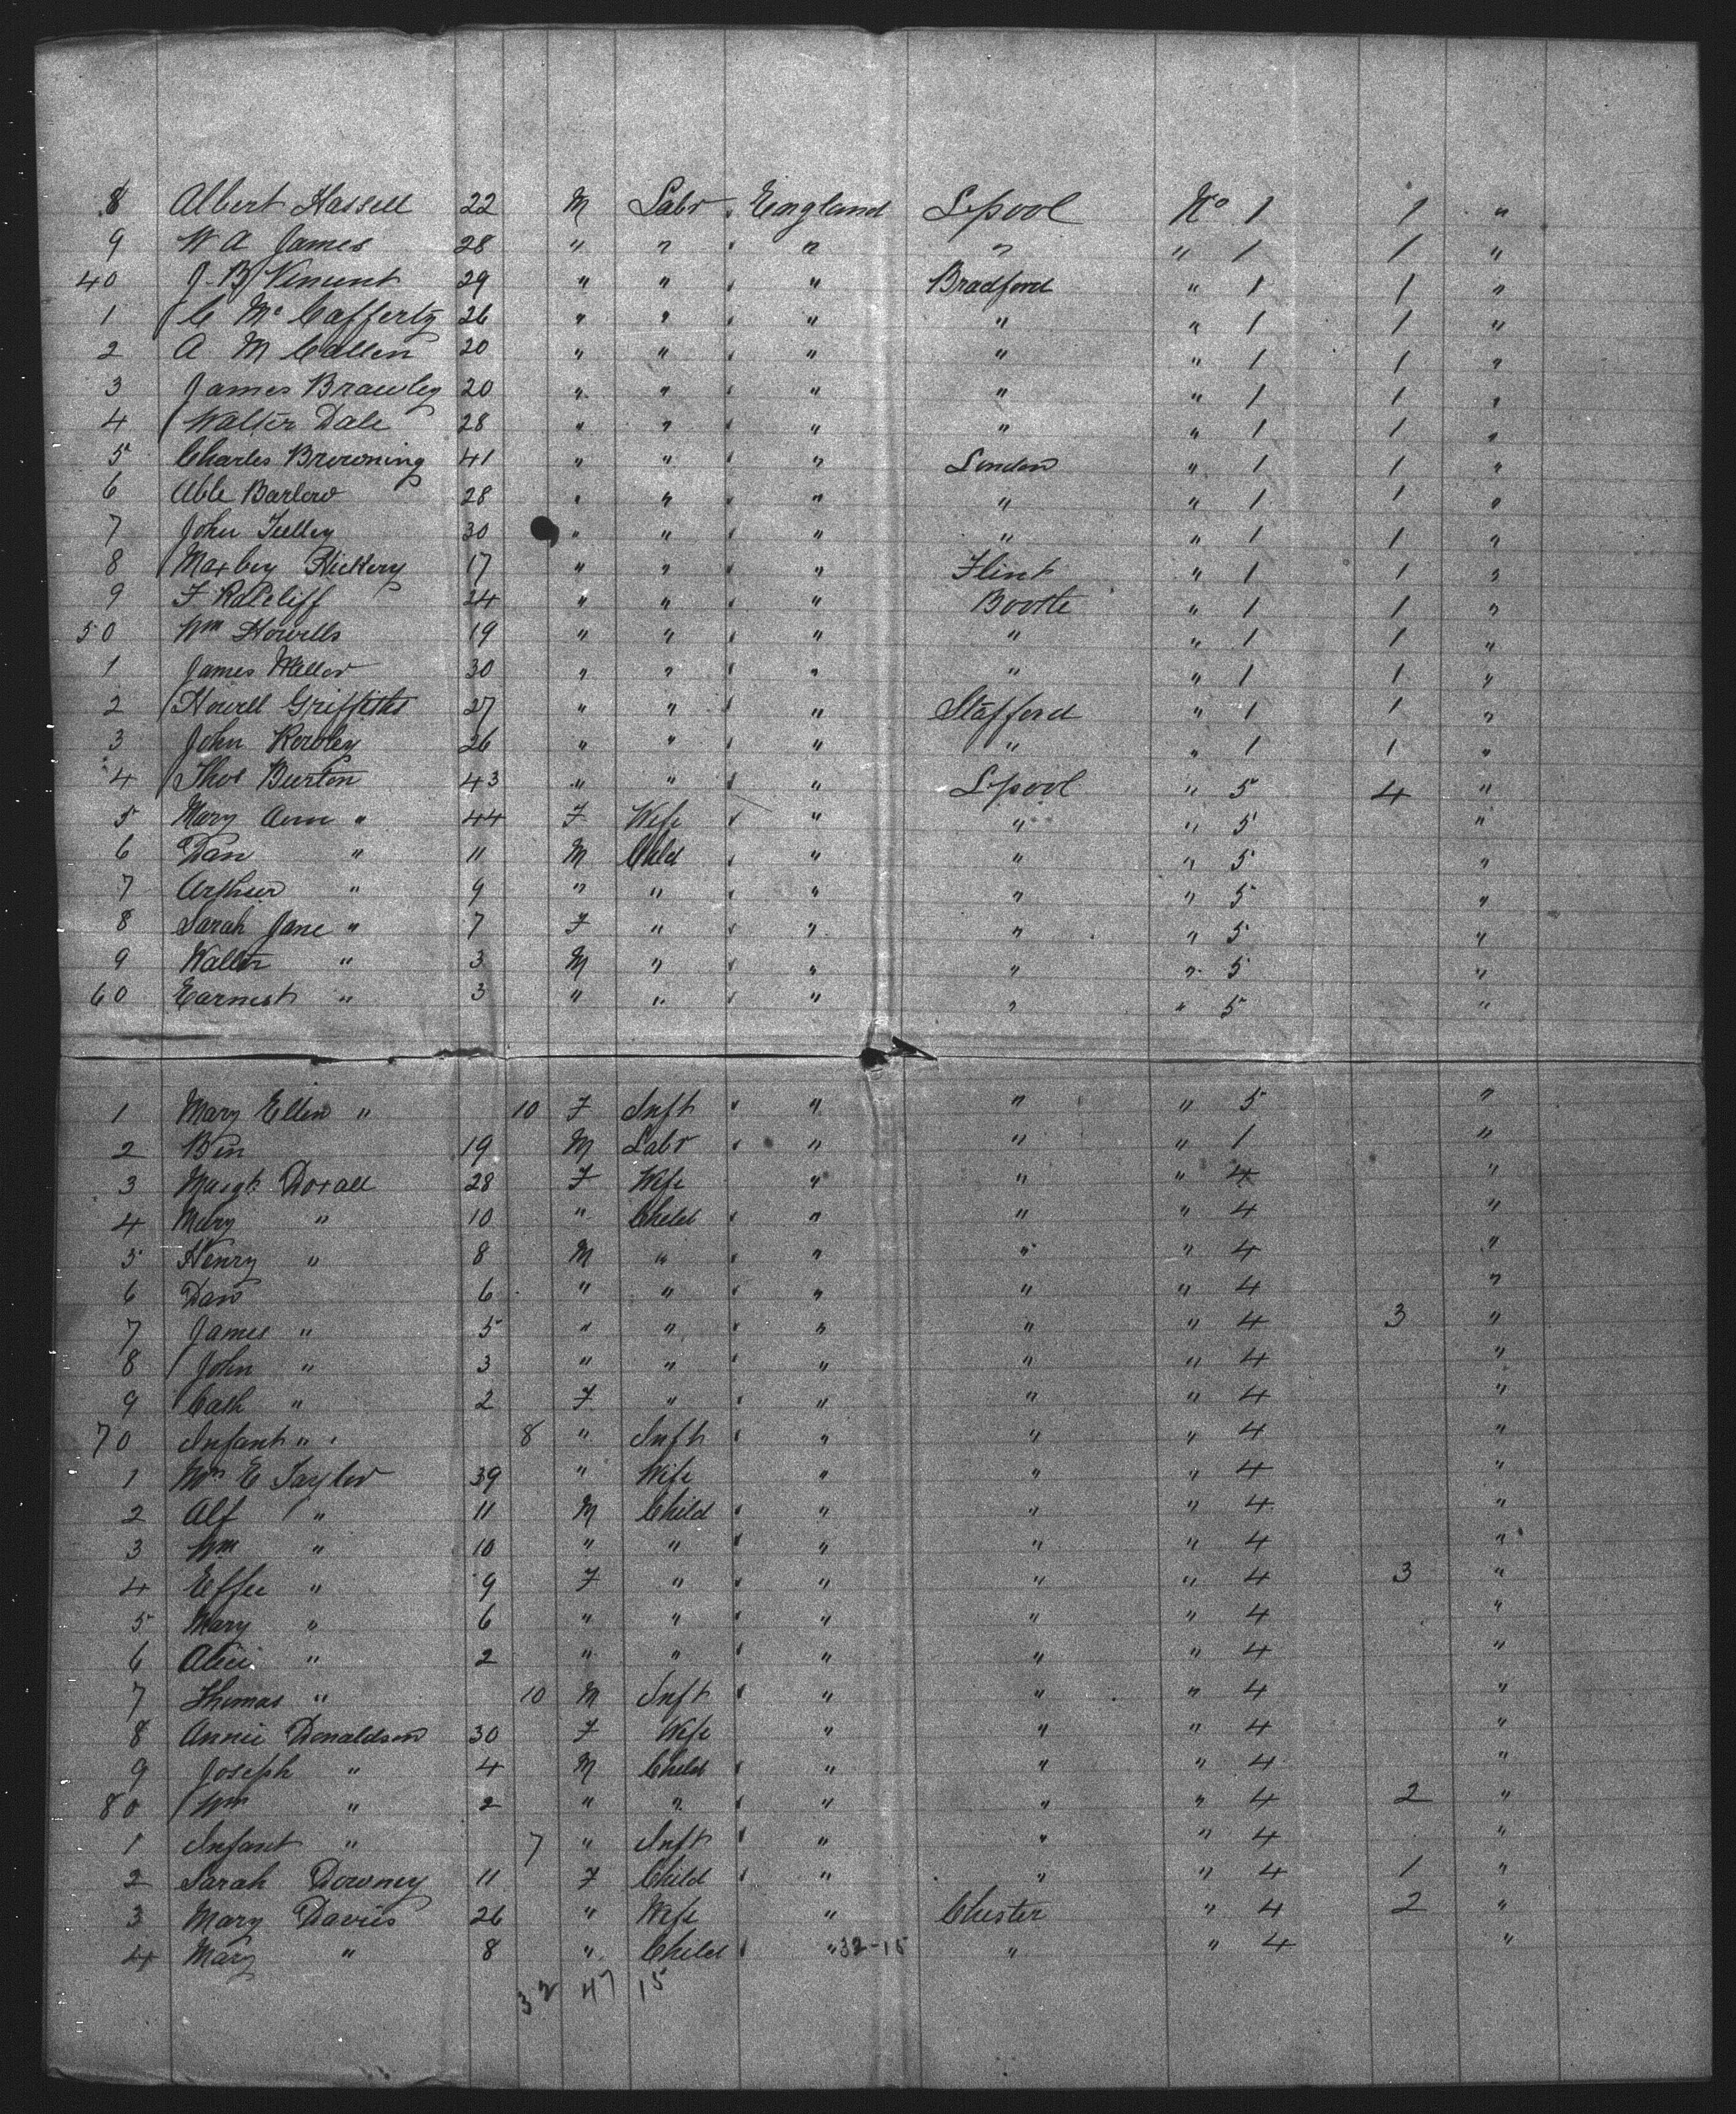 8 Albert Hassell 22 M Labr England Lpool No 1 1 "
9 W A James 28 " " " " " 1 1 "
40 J. B. Vincent 29 " " " Bradford " 1 1 "
1 C Mc Cafferty 26 " " " " " 1 1 "
2 A M Callen 20 " " " " " 1 1 "
3 James Brawley 20 " " " " " 1 1 "
4 Walter Dale 28 " " " " " 1 1 "
5 Charles Browning 41 " " " London " 1 1 "
6 Able Barlow 28 " " " " " 1 1 "
7 John Tulley 30 " " " " " 1 1 "
8 Hickery 17 " " " Flint " 1 1 "
9 F Ratcliff 24 " " " Bootle " 1 1 "
50 Wm Howells 19 " " " " " 1 1 "
1 James 30 " " " " " 1 1 "
2 Howell Griffiths 27 " " " Stafford " 1 1 "
3 John Rowley 26 " " " " " 1 1 "
4 Thos Burton 43 " " " Lpool " 5 4 "
5 Mary Ann " 44 F Wife " " " 5 "
6 Dan " 11 M Child " " " 5 "
7 Arthur " 9 " " " " " 5 "
8 Sarah Jane " 7 F " " " " 5 "
9 Walter " 3 M " " " " 5 "
60 Earnest " 3 " " " " " 5 "
1 Mary Ellen " 10 F Inft " " " 5 "
2 Ben 19 M Labr " " " 1 "
3 Margt. Doxall 28 F Wife " " " 4 "
4 Mary " 10 " Child " " " 4 "
5 Henry " 8 M " " " " 4 "
6 Dan 6 " " " " " 4 "
7 James " 5 " " " " " 4 3 "
8 John " 3 " " " " " 4 "
9 Cath " 2 F " " " " 4 "
70 Infant " 8 " Inft " " " 4 "
1 E Taylor 39 " Wife " " " 4 "
2 Alf " 11 M Child " " " 4 "
3 Wm " 10 " " " " " 4 "
4 Effie " 9 F " " " " 4 3 "
5 Mary " 6 " " " " " 4 "
6 Alice " 2 " " " " " 4 "
7 Thomas " 10 M Inft " " " 4 "
8 Annie Donaldson 30 F Wife " " " 4 "
9 Joseph " 4 M Child " " " 4 "
80 Wm " 2 " " " " " 4 2 "
1 Infant " 7 " Inft " " " 4 "
2 Sarah Downey 11 F Child " " " 4 1 "
3 Mary Davies 26 " Wife " Chester " 4 2 "
4 Mary " 8 " Child " 32-15 " " 4 "
32 47 15